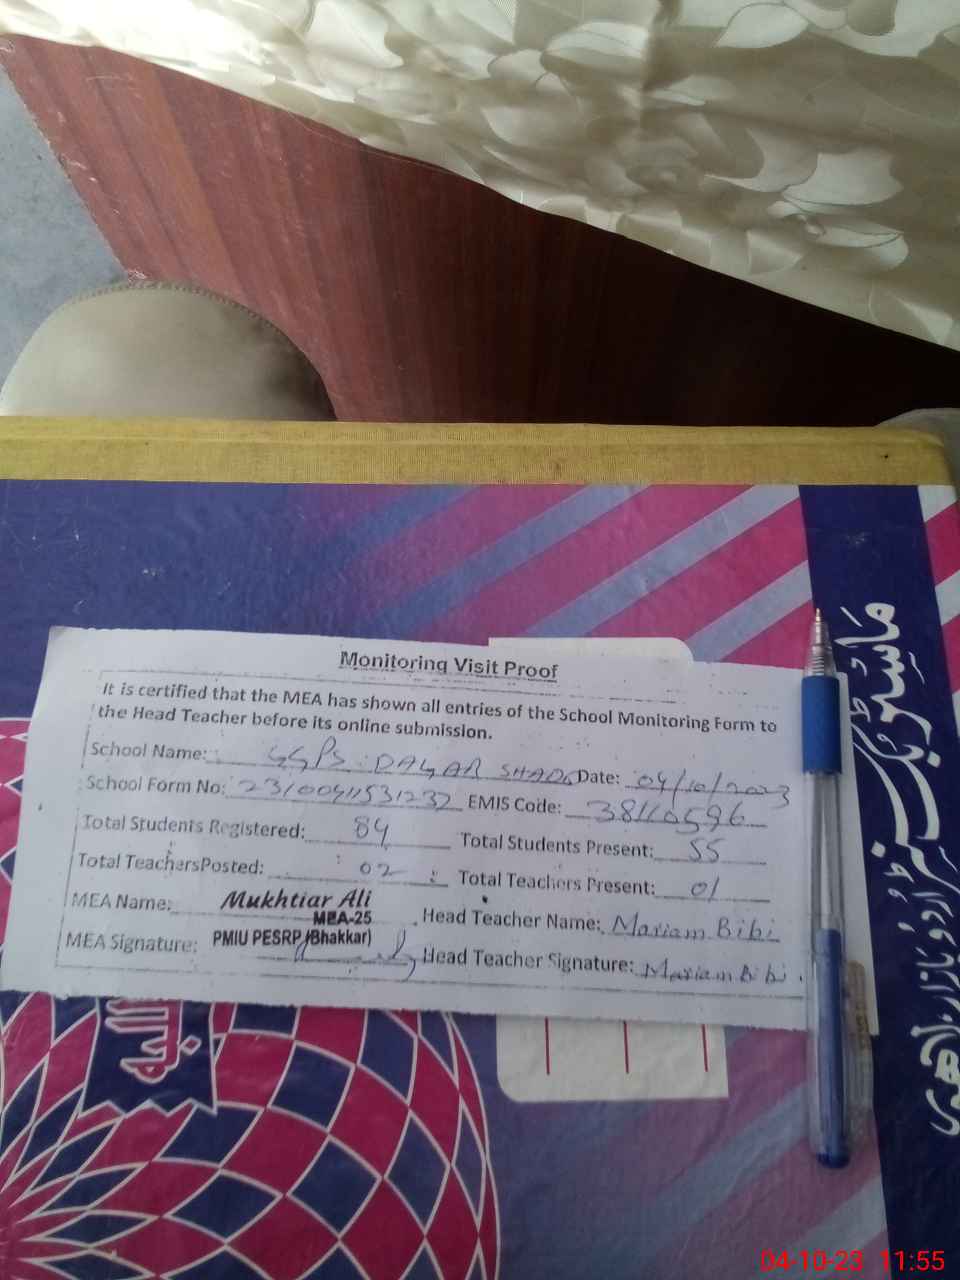 Monitoring Visit Proof
It is certified that the MEA has shown all entries of the School Monitoring Form to
the Head Teacher before its online submission.
School Name: GGPS DAGAR Date: 04/10/2023
School Form No: 23100411531232 EMIS Code: 38110596
Total Students Registered: 84 Total Students Present: 55
Total TeachersPosted: 02 Total Teachers Present: 01
MEA Name: Mukhtiar Ali Head Teacher Name: Mariam Bibi
MEA-25
MEA Signature: PMIU PESRP (Bhakkar) Head Teacher Signature: Mariam Bibi
04-10-23 11:55